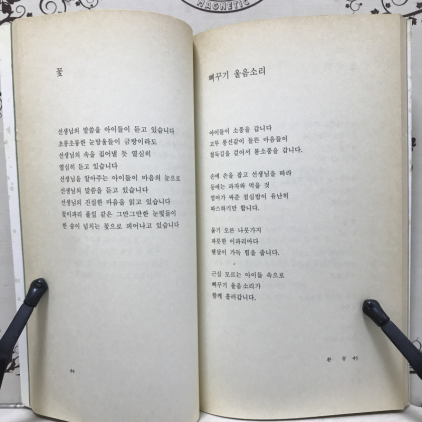 MAGNETIC
꽃
선생님의 말씀을 아이들이 듣고 있습니다
초롱초롱한 눈망울들이 금방이라도
선생님의 속을 끌어낼 듯 열심히
열심히 듣고 있습니다
선생님을 닮아가는 아이들이 마음의 눈으로
선생님의 말씀을 듣고 있습니다
선생님의 진실한 마음을 읽고 있습니다
꽃이파리 풀잎 같은 그만그만한 눈빛들이
한 송이 넘치는 꽃으로 피어나고 있습니다
뻐꾸기 울음소리
아이들이 소풍을 갑니다
고무 풍선같이 들뜬 마음들이
철둑길을 걸어서 봄소풍을 갑니다.
손에 손을 잡고 선생님을 따라
등에는 과자와 먹을 것
엄마가 싸준 점심밥이 유난히
따스하기만 합니다.
물기 오른 나뭇가지
파릇한 이파리마다
햇살이 가득 힘을 줍니다.
근심 모르는 아이들 속으로
뻐꾸기 울음소리가
함께 흘러갑니다.